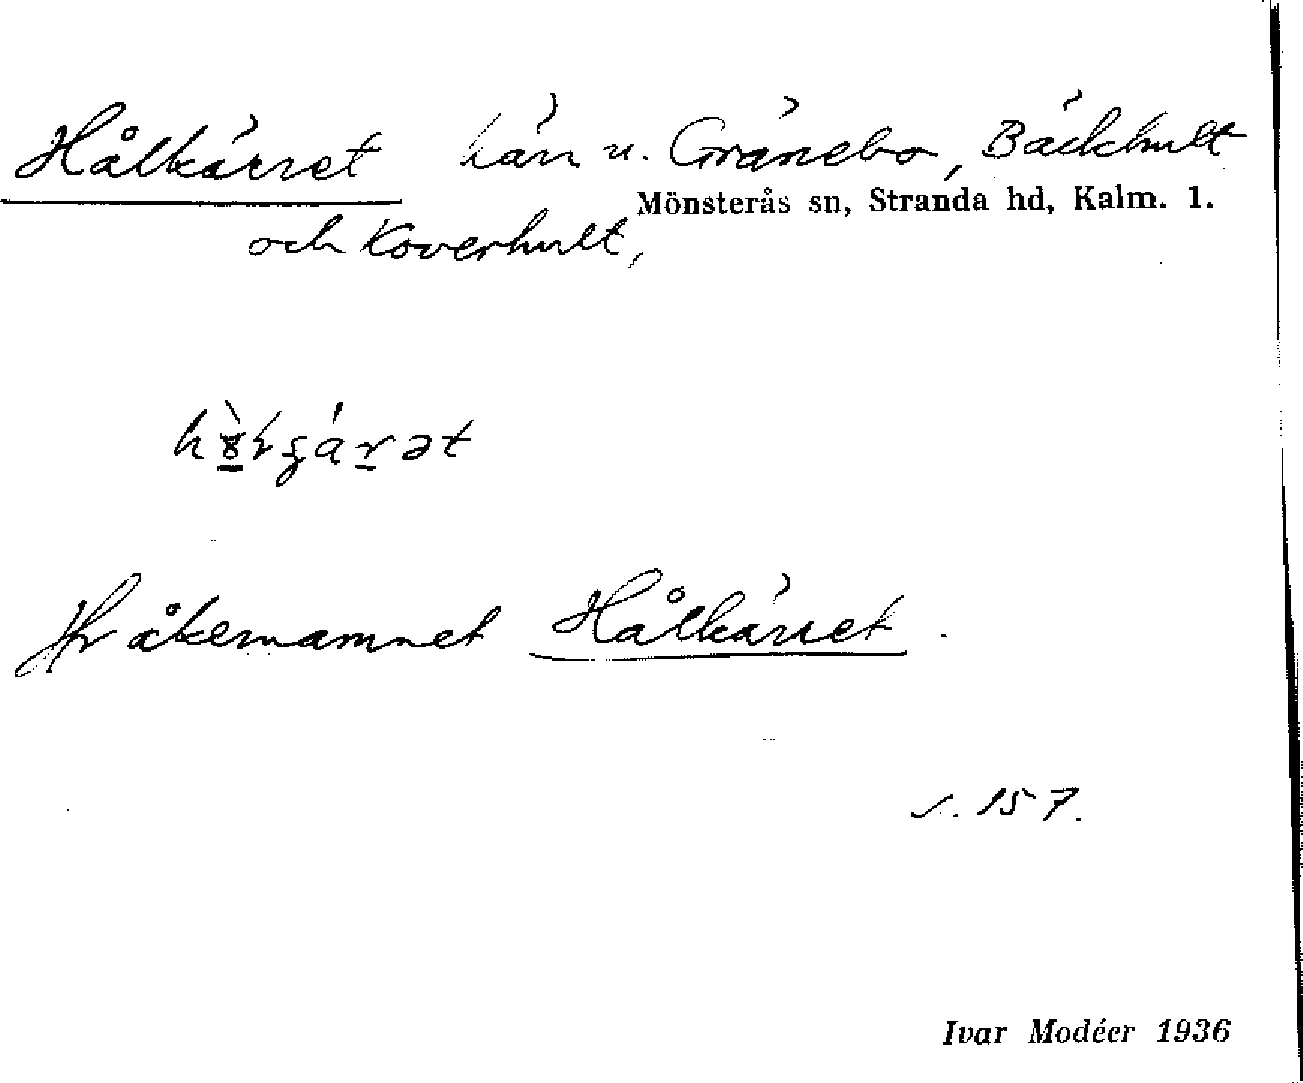 Hålkärret kärr u. Gränebo, Bäckhult
Mönsterås sn, Stranda hd, Kalm. l.
och Koverhult,
Jfr åkernamnet Hålkärret.
s. 157.
Ivar Modéer 1936